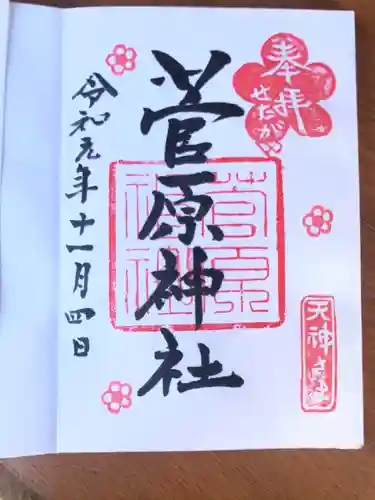 奉拝
せたがや
菅原神社
菅原
神社
令和元年十一月四日
天神